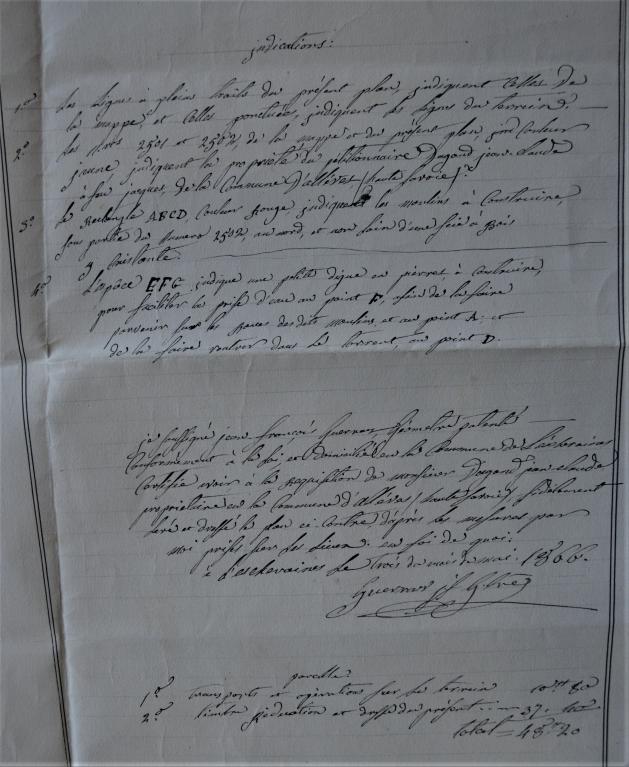 indications:
1º Les lignes à pleins traits du présent plan, indiquent celles de
la mappe, et celles ponctuées, indiquent les lignes du terrein. —
2º Les nros 2501 et 2502, de la mappe et du présent plan, couleur
jaune, indiquent la propriété du pétitionnaire Dagand jean-claude
à feu jacques, de la Commune d'allèves (haute Savoie).
3º Le Rectangle ABCD, Couleur Rouge, indiquent les moulins à Construire,
sous partie du Numero 2502, au nord, et non loin d'une Scie à Bois
y Existante.
4º L'espace EFG, indique une petite digue en pierres à Construire,
pour faciliter la prise d'eau au point F, afin de la faire
parvenir sur les Roues des dits moulins, et au point A: et
de la faire rentrer dans le torrent, au point D.
je soussigné jean françois Guerraz Géomètre patenté
Conformément à la loi et Domicilié en la Commune de Lescheraines
Certifie avoir à la Requisition de monsieur Dagand jean claude
proprietaire en la Commune d'allèves (haute Savoie) fidèlement
levé et dressé le plan ci-Contre d'après les mesures par
moi prises sur les Lieux. en foi de quoi.
à Lescheraines le trois du mois de mai. 1866.
Guerraz jf
parcelle.
1º transports et opérations sur le terrein 10 80
2º timbre rédaction et dressé du présent. 37.
total = 48 20